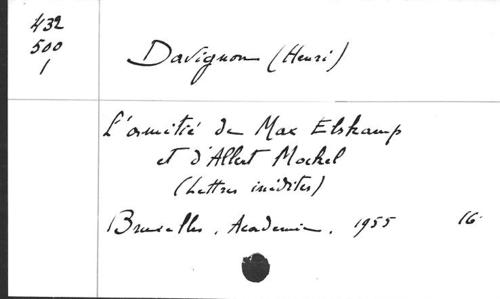 432
500
1
Davignon (Henri)
L'amitié de Max Elskamp
et d'Albert Mockel
(Lettres inédites)
Bruxelles, Academie, 1955 16